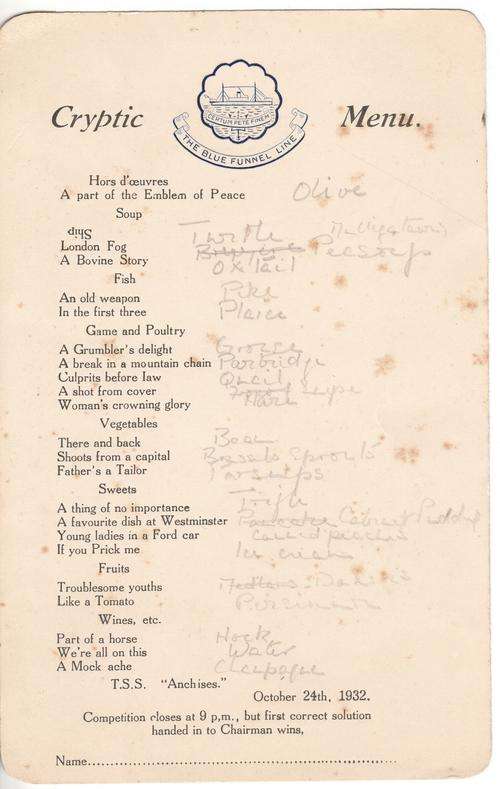 Cryptic Menu.
CERTUM PETE FINEM
THE BLUE FUNNEL LINE
Hors d'œuvres
A part of the Emblem of Peace Olive
Soup
Ship Turtle
London Fog Peasoup
A Bovine Story Ox tail
Fish
An old weapon Pike
In the first three Plaice
Game and Poultry
A Grumbler's delight Grouse
A break in a mountain chain Partridge
Culprits before law Quail
A shot from cover Snipe
Woman's crowning glory Hare
Vegetables
There and back Bean
Shoots from a capital Brussels Sprouts
Father's a Tailor Parsnips
Sweets
A thing of no importance Trifle
A favourite dish at Westminster Cabinet Pudding
Young ladies in a Ford car
If you Prick me Ice cream
Fruits
Troublesome youths
Like a Tomato
Wines, etc.
Part of a horse Hock
We're all on this Water
A Mock ache
T.S.S. "Anchises."
October 24th, 1932.
Competition closes at 9 p,m., but first correct solution
handed in to Chairman wins,
Name